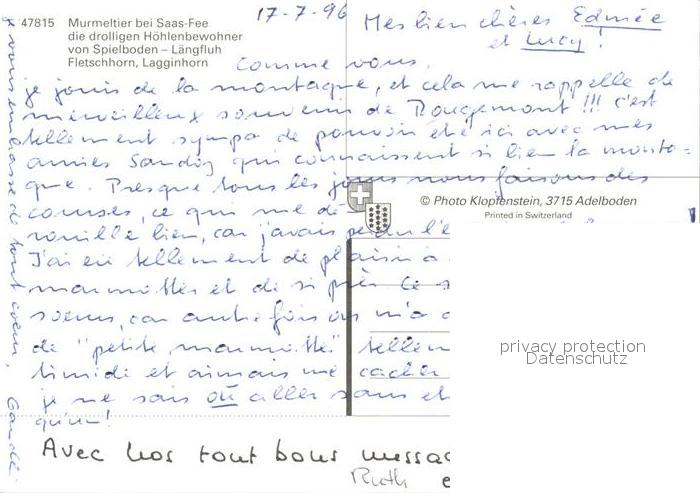 47815 Murmeltier bei Saas-Fee
die drolligen Höhlenbewohner
von Spielboden – Längfluh
Fletschhorn, Lagginhorn
17-7-96
Mes bien chères Edmée
et Lucy!
Comme vous,
je jouis de la montagne, et cela me rappelle de
merveilleux souvenir de Rougemont !!! c'est
tellement sympa de pouvoir être ici avec mes
amies Sandoz qui connaissent si bien la monta=
gne. Presque tous les jours nous faisons des
courses, ce qui me dé
rouille bien, car j'avais perdu l'e
J'ai eu tellement de plaisir à
marmottes et de si près ce s
car autrefois on m'a
de "petite marmotte" tellem
timide et aimais me cacher
je ne sais où aller sans
qu'un!
Avec nos tout bons messag
Ruth e
je vous embrasse de tout coeur,
© Photo Klopfenstein, 3715 Adelboden
Printed in Switzerland
privacy protection
Datenschutz